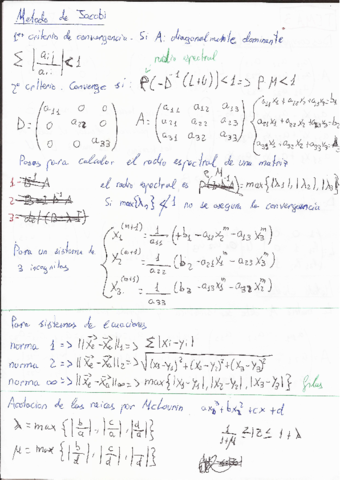 Metodo de Jacobi
1er criterio de convergencia. Si A: diagonalmente dominante
∑ |aij/aii| < 1
radio espectral
2º criterio. Converge si: ρ(-D⁻¹(L+U)) < 1 => ρ M < 1
D = (a11 0 0; 0 a22 0; 0 0 a33) A = (a11 a12 a13; a21 a22 a23; a31 a32 a33)
Pasos para calcular el radio espectral de una matriz
1-
el radio espectral es = max{|λ1|, |λ2|, |λ3|}
2-
Si no se asegura la convergencia
3-
Para un sistema de 3 incognitas
x1^(m+1) = 1/a11 (+b1 - a12x2^m - a13x3^m)
x2^(m+1) = 1/a22 (b2 - a21x1^m - a23x3^m)
x3^(m+1) = 1/a33 (b3 - a31x1^m - a32x2^m)
Para sistemas de ecuaciones
norma 1 => = ∑|xi-yi|
norma 2 => = √((x1-y1)² + (x2-y2)² + (x3-y3)²)
norma ∞ => = max{|x1-y1|, |x2-y2|, |x3-y3|} filas
Acotacion de las raices por McLaurin. ax³ + bx² + cx + d
λ = max{|b/a|, |c/a|, |d/a|} 1/(1+μ) ≤ |z| ≤ 1+λ
μ = max